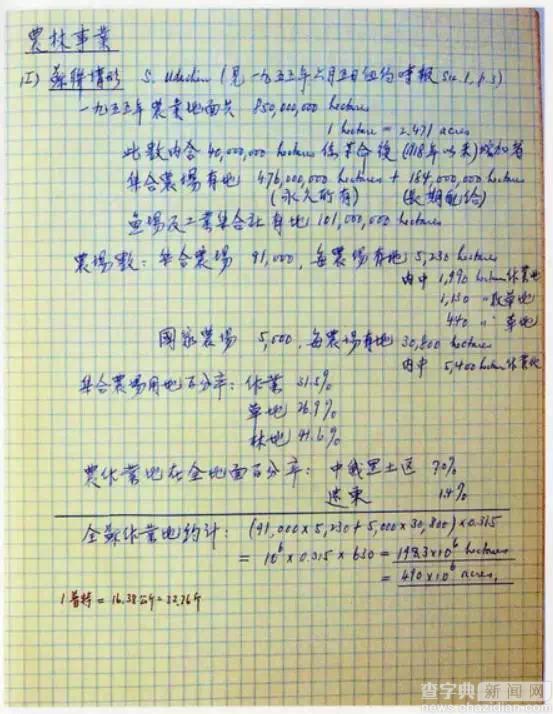 農林事業
(I) 蘇聯情形 S. (見一九五五年六月五日紐約時報 Sec. 1, p. 3)
一九五五年農業地面共 850,000,000 hectares
1 hectare = 2.471 acres
此數內含 40,000,000 hectares 係革命後 (1918年以來) 增加者
集合農場有地 476,000,000 hectares + 184,000,000 hectares
(永久所有) (長期配給)
魚場及工業集合社有地 101,000,000 hectares
農場數: 集合農場 91,000, 每農場有地 5,230 hectares
內中 1,990 hectares 作業地
1,150 〃 牧草地
440 〃 草地
國家農場 5,000, 每農場有地 30,800 hectares
內中 5,400 hectares 作業地
集合農場用地百分率: 作業 31.5%
草地 26.9%
林地 41.6%
農作業地在全地面百分率: 中俄黑土区 70%
遠東 1.4%
全蘇作業地約計: (91,000 x 5,230 + 5,000 x 30,800) x 0.315
= 10⁶ x 0.315 x 630 = 198.3 x 10⁶ hectares
= 490 x 10⁶ acres.
1 普特 = 16.38 公斤 = 32.76 斤
查字典新闻网
news.chazidian.com